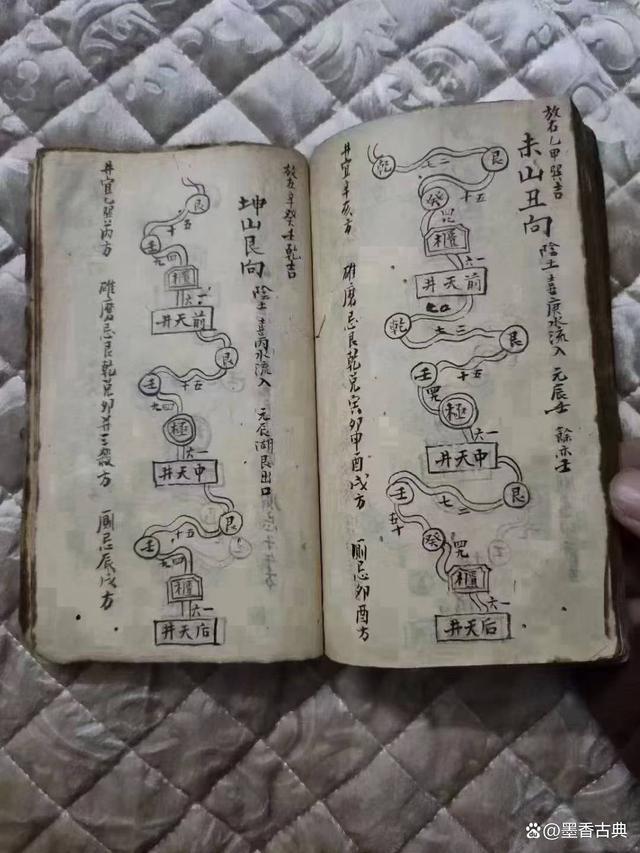 放右乙甲巽吉
未山丑向 陰土 喜庚水流入 元辰壬 餘亦壬
艮
乾
二七
五十
癸
四九
櫃
一六
井天前
艮
乾
二七
五十
壬
四九
極
一六
井天中
艮
壬
二七
五十
癸
四九
櫃
一六
井天后
井宜辛亥方 碓磨忌艮乾兌寅卯甲酉戌方 厠忌卯酉方
放左辛癸壬乾吉
坤山艮向 陰土 喜丙水流入 元辰湖艮出口
艮
五十
壬
四九
櫃
一六
井天前
艮
五十
壬
四九
極
一六
井天中
艮
五十
壬
四九
櫃
一六
井天后
井宜乙巽丙方 碓磨忌艮乾兌卯并三殺方 厠忌辰戌方
墨香古典